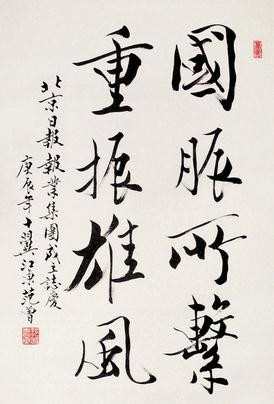 國脈所繫
重振雄風
北京日報報業集團成立誌慶
庚辰年十翼江東范曾